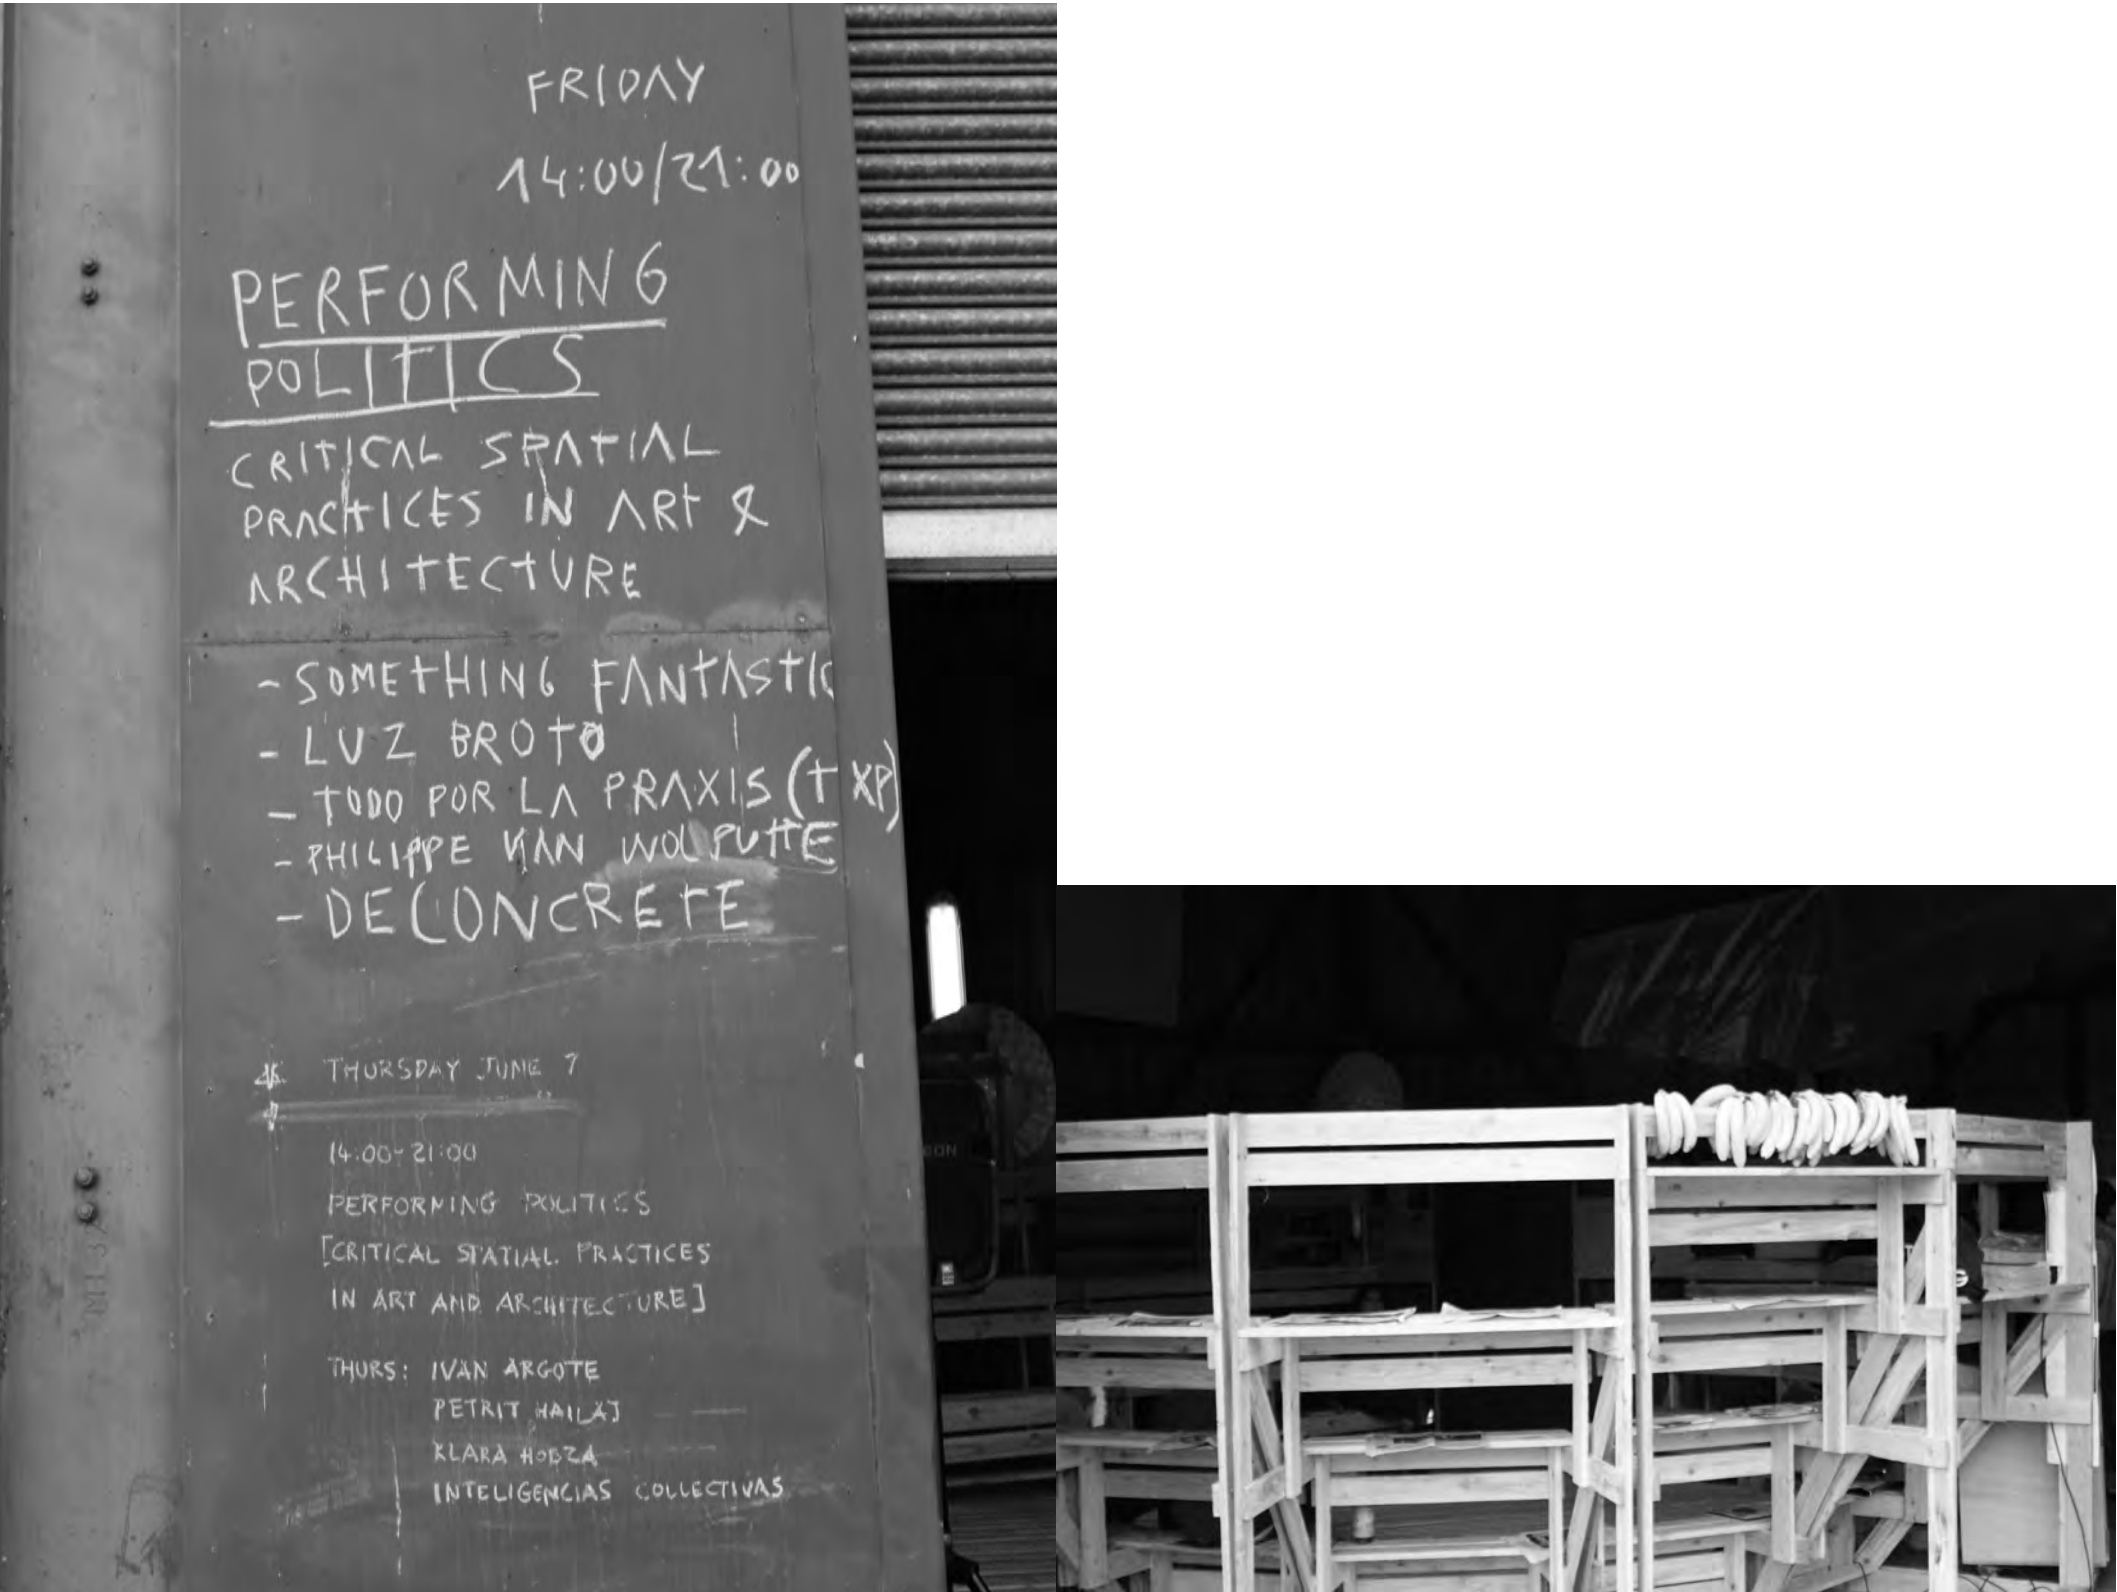 FRIDAY
14:00/21:00
PERFORMING
POLITICS
CRITICAL SPATIAL
PRACTICES IN ART &
ARCHITECTURE
- SOMETHING FANTASTIC
- LUZ BROTO
- TODO POR LA PRAXIS (TXP)
- PHILIPPE VAN WOLPUTTE
- DECONCRETE
THURSDAY JUNE 7
14:00-21:00
PERFORMING POLITICS
[CRITICAL SPATIAL PRACTICES
IN ART AND ARCHITECTURE]
THURS: IVÁN ARGOTE
PETRIT HAILAJ
KLARA HOBZA
INTELIGENCIAS COLLECTIVAS